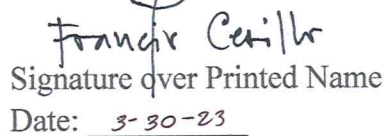 Francis Cerillo
Signature over Printed Name
Date: 3-30-23